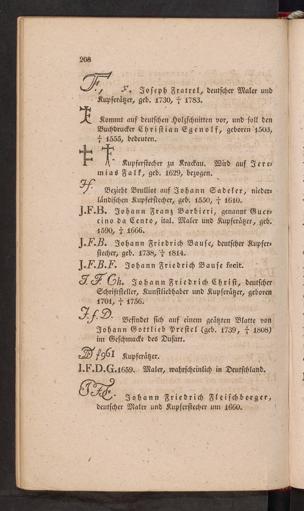 208
F, F. Joseph Fratrel, deutscher Maler und
Kupferätzer, geb. 1730, † 1783.
Kommt auf deutschen Holzschnitten vor, und soll den
Buchdrucker Christian Egenolf, geboren 1503,
† 1555, bedeuten.
Kupferstecher zu Krackau. Wird auf Jere-
mias Falk, geb. 1629, bezogen.
Jf. Bezieht Brulliot auf Johann Sadeler, nieder-
ländischen Kupferstecher, geb. 1550, † 1610.
J.F.B. Johann Franz Barbieri, genannt Guer-
cino da Cento, ital. Maler und Kupferätzer, geb.
1590, † 1666.
J.F.B. Johann Friedrich Bause, deutscher Kupfer-
stecher, geb. 1738, † 1814.
J.F.B.F. Johann Friedrich Bause fecit.
J.F.Ch. Johann Friedrich Christ, deutscher
Schriftsteller, Kunstliebhaber und Kupferätzer, geboren
1701, † 1756.
J.f.D. Befindet sich auf einem geätzten Blatte von
Johann Gottlieb Prestel (geb. 1739, † 1808)
im Geschmacke des Dusart.
Kupferätzer.
I.F.D.G. 1659. Maler, wahrscheinlich in Deutschland.
Johann Friedrich Fleischberger,
deutscher Maler und Kupferstecher um 1660.